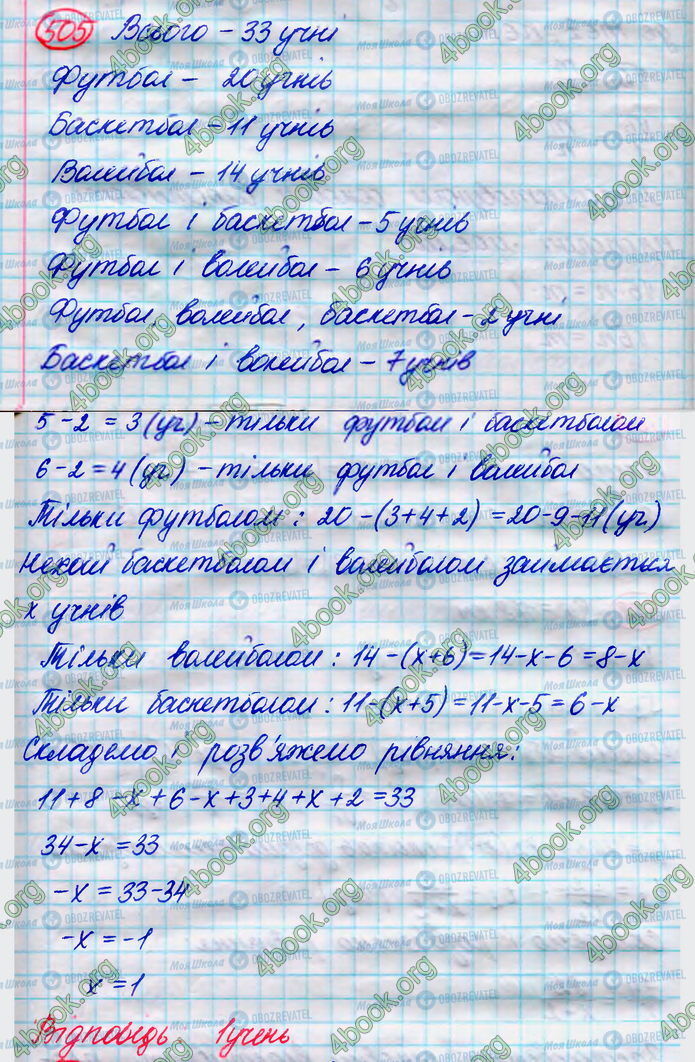 505 Всього – 33 учні
Футбол – 20 учнів
Баскетбол – 11 учнів
Волейбол – 14 учнів
Футбол і баскетбол – 5 учнів
Футбол і волейбол – 6 учнів
Футбол, волейбол, баскетбол – 2 учні
Баскетбол і волейбол – 7 учнів
5 – 2 = 3 (уч) – тільки футбол і баскетболом
6 – 2 = 4 (уч) – тільки футбол і волейбол
Тільки футболом: 20 – (3+4+2) = 20 – 9 – 11 (уч)
Нехай баскетболом і волейболом займається
х учнів
Тільки волейболом: 14 – (х+6) = 14 – х – 6 = 8 – х
Тільки баскетболом: 11 – (х+5) = 11 – х – 5 = 6 – х
Складемо і розв'яжемо рівняння:
11 + 8 – х + 6 – х + 3 + 4 + х + 2 = 33
34 – х = 33
– х = 33 – 34
– х = – 1
х = 1
Відповідь 1 учень